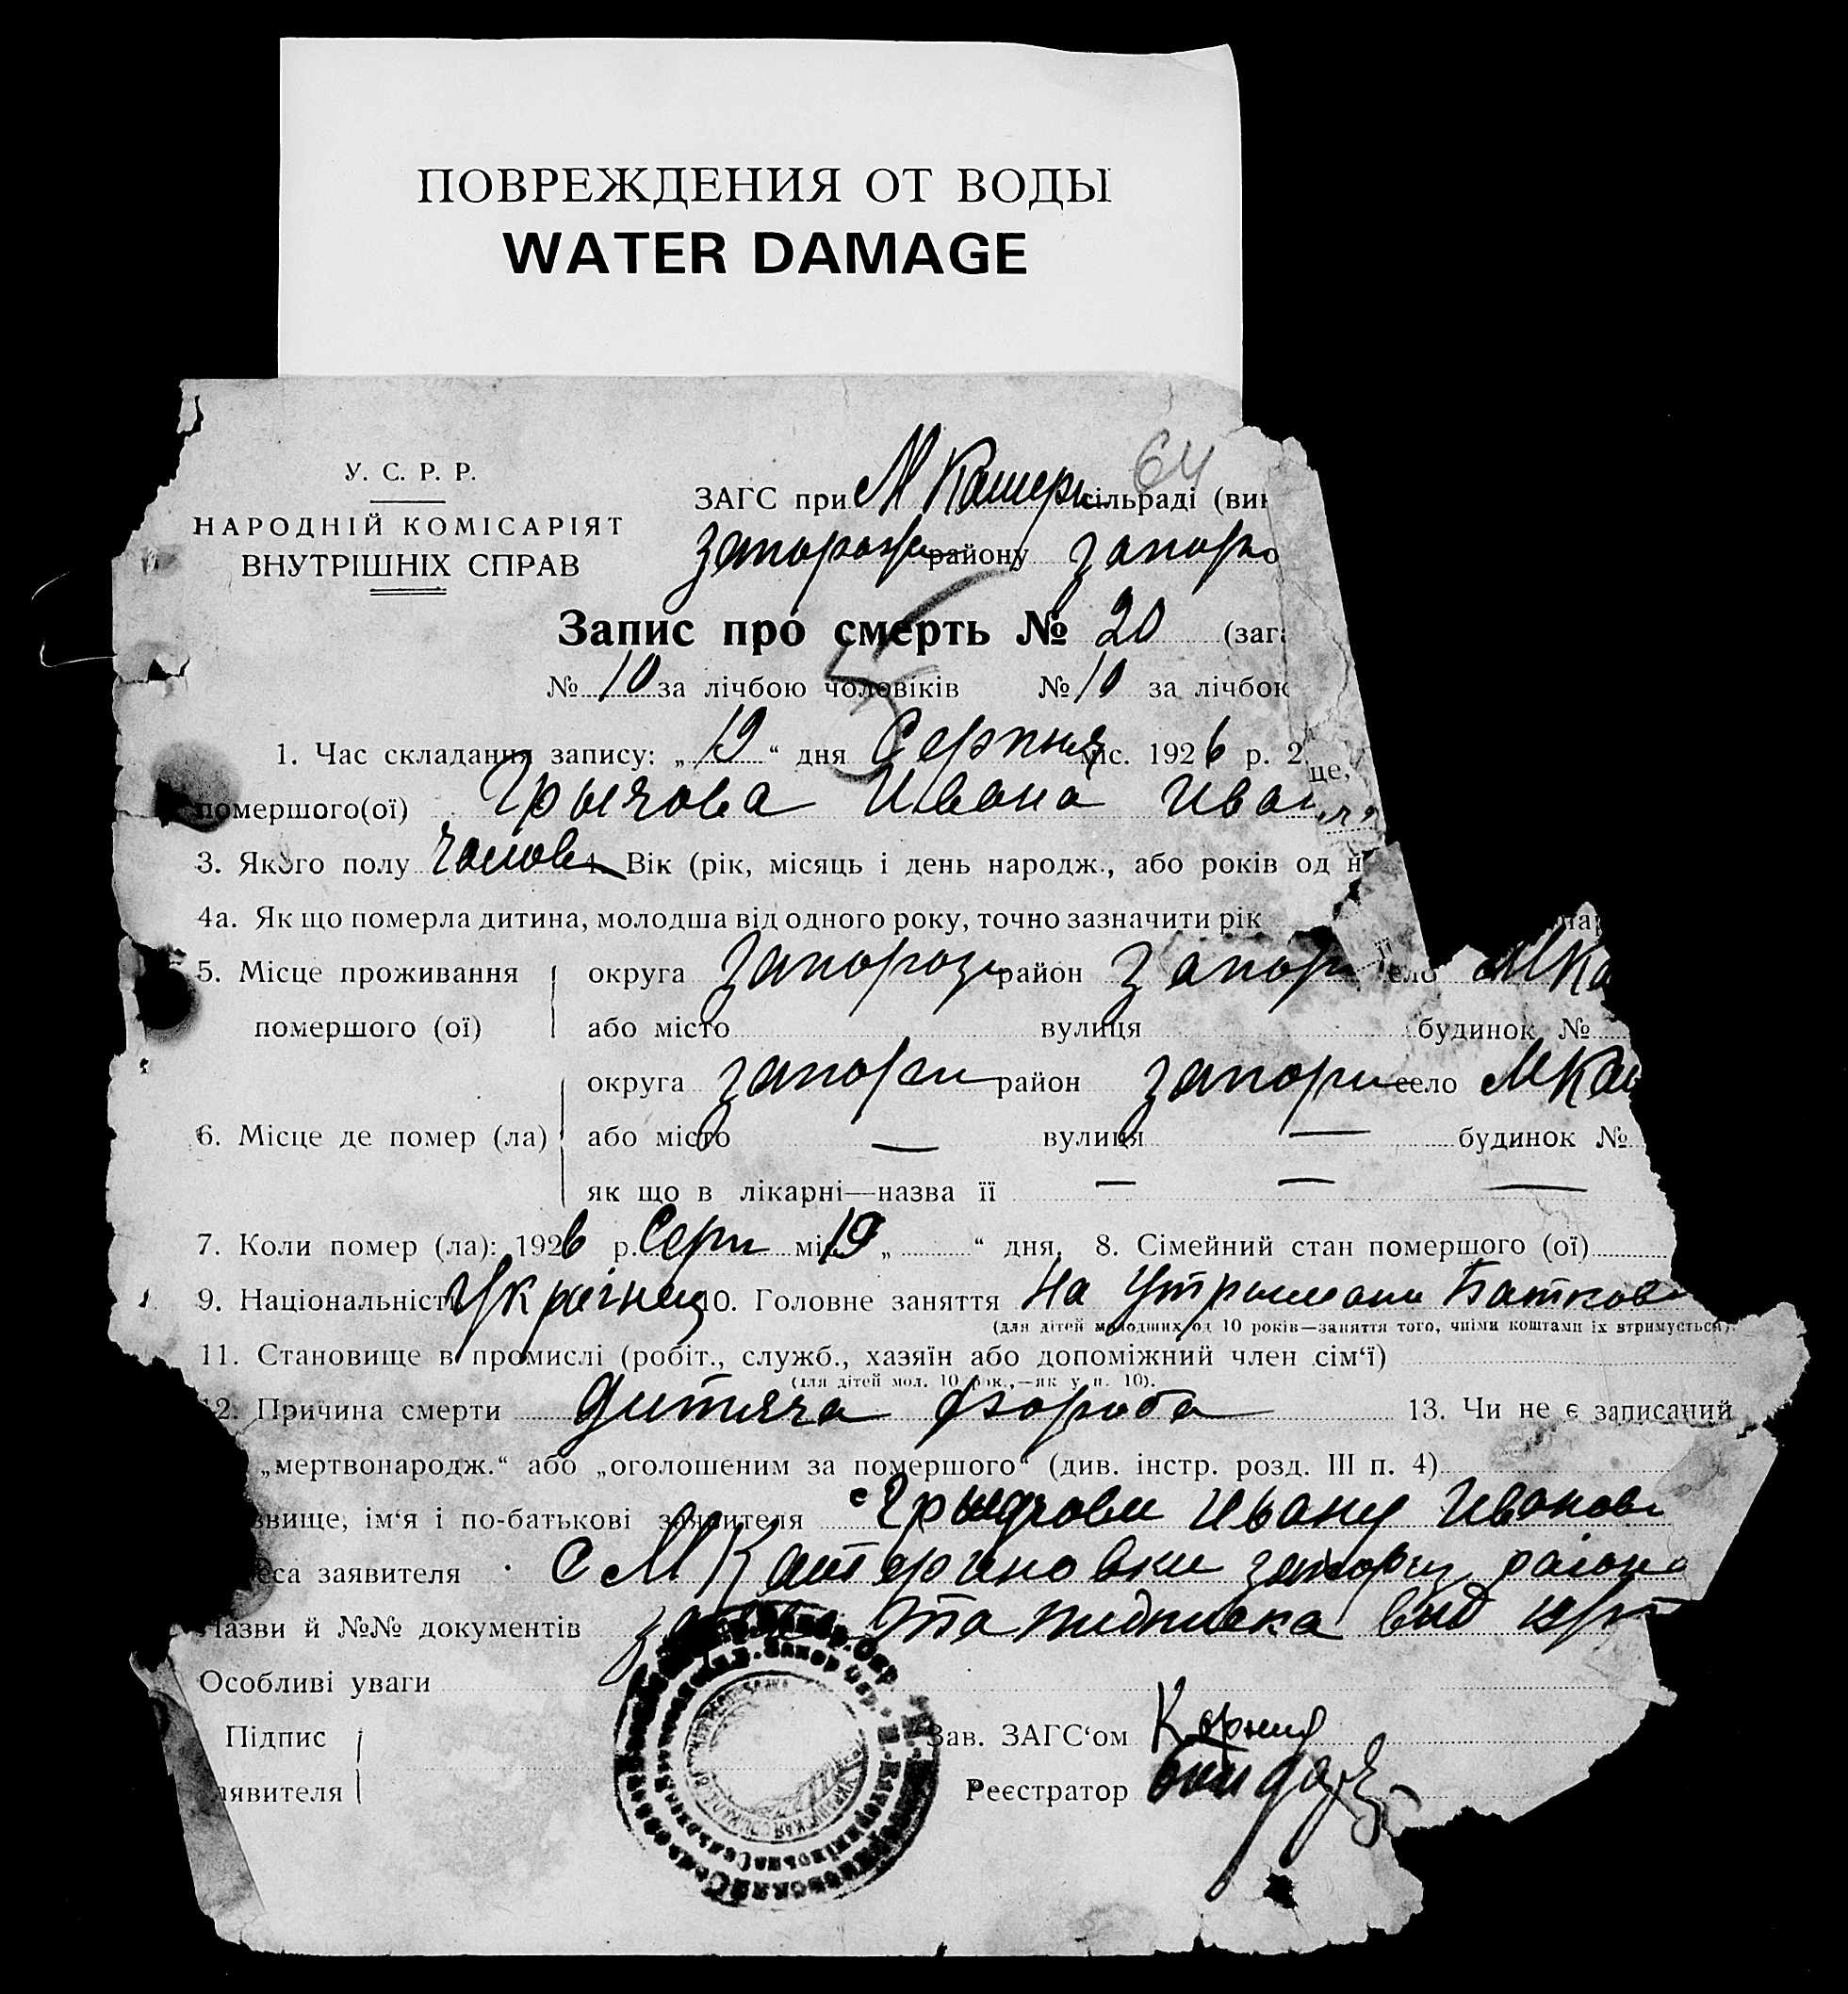 ПОВРЕЖДЕНИЯ ОТ ВОДЫ
WATER DAMAGE
64
У. С. Р. Р.
НАРОДНІЙ КОМІСАРІЯТ
ВНУТРІШНІХ СПРАВ
ЗАГС при М Катери сільраді (вик
Запорож району Запоро
Запис про смерть № 20 (зага
№ 10 за лічбою чоловіків № 10 за лічбою
1. Час складання запису: „19“ дня Серпня міс. 1926 р. 2.
помершого(ої) Ивана Ива
3. Якого полу чолов 4. Вік (рік, місяць і день народж., або років од н
4а. Як що померла дитина, молодша від одного року, точно зазначити рік
5. Місце проживання округа Запороз район Запор село МКа
помершого (ої) або місто вулиця будинок №
округа Запори район Запори село МКа
6. Місце де помер (ла) або місто — вулиця — будинок №
як що в лікарні—назва її — — —
7. Коли помер (ла): 1926 р. Серп міс 19 „ “ дня. 8. Сімейний стан помершого (ої)
9. Національність Украінец 10. Головне заняття На Утримани Батков
(для дітей молодших од 10 років—заняття того, чиїми коштами їх втримується).
11. Становище в промислі (робіт., служб., хазяїн або допоміжний член сім‘ї)
(для дітей мол. 10 рок.,—як у п. 10).
12. Причина смерти дитяча хороба 13. Чи не є записаний
„мертвонародж.“ або „оголошеним за помершого“ (див. інстр. розд. III п. 4)
звище, ім‘я і по-батькові заявителя Ивану Иванов
еса заявителя С М Катериновки запориз района
Назви й №№ документів та підписка
Особливі уваги
Підпис Зав. ЗАГС‘ом
аявителя Реєстратор